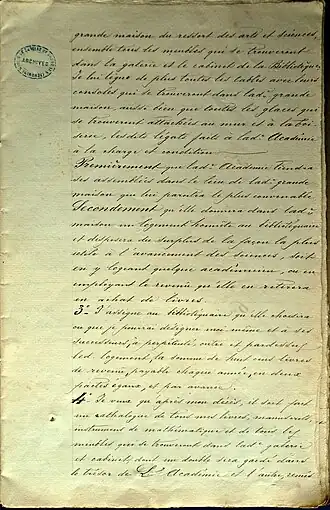 ARCHIVES
grande maison du ressort des arts et sciences,
ensemble tous les meubles qui se trouveront
dans la galerie et le cabinet de la Bibliothèque.
Je lui lègue de plus toutes les tables avec leurs
consoles qui se trouveront dans lad. grande
maison, aussi bien que toutes les glaces qui
se trouveront attachées au mur et à la boi
serie, les dits légats faits à lad. Académie
à la charge et condition
Premièrement que lad. Académie tiendra
ses assemblées dans le lieu de lad. grande
maison qui lui paraîtra le plus convenable
Secondement qu'elle donnera dans lad.
maison un logement honnête au bibliothéquaire
et disposera du surplus de la façon la plus
utile à l'avancement des sciences, soit
en y logeant quelque académicien, ou en
employant le revenu qu'elle en retirera
en achat de livres.
3° J'assigne au bibliothéquaire qu'elle choisira
ou que je pourrai désigner moi même et à ses
successeurs, à perpétuité, outre et pardessus
led. logement, la somme de huit cens livres
de revenu, payable chaque année, en deux
pactes égaux, et par avance.
4° Je veux qu'après mon décès, il soit fait
un cathalogue de tous mes livres, manuscrits,
instrumens de mathématique et de tous les
meubles qui se trouveront dans lad. galerie
et cabinet, dont un double sera gardé dans
le trésor de L'Académie et l'autre, remis